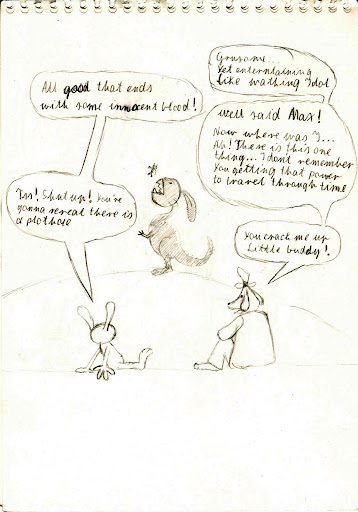 Grusome...
Yet enterntaining
Like wathing Idol
All good that ends
with some innocent blood!
Well said Max!
Now where was I...
Ah! There is this one
thing... I dont remember
You getting that power
to travel through time
Shut up! You're
gonna reveal there is
a plothole
You crack me up
Little buddy!